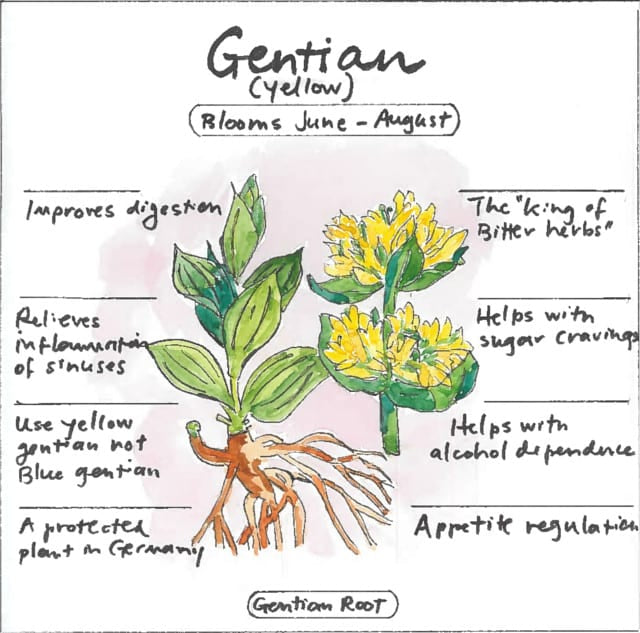 Gentian
(yellow)
Blooms June - August
Improves digestion
Relieves
inflammation
of sinuses
Use yellow
gentian not
Blue gentian
A protected
plant in Germany
The "king of
Bitter herbs"
Helps with
sugar cravings
Helps with
alcohol dependence
Appetite regulation
Gentian Root